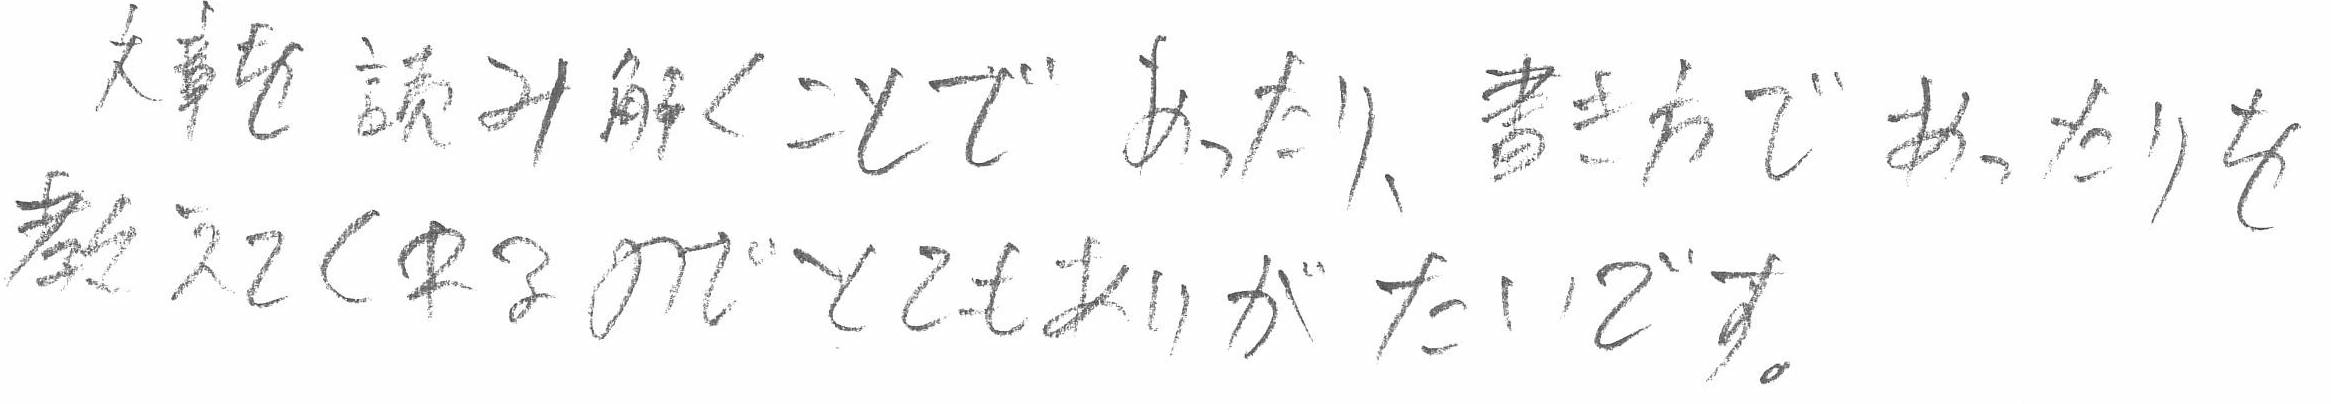 文章を読み解くことであったり、書き方であったりを
教えてく来るのでとてもありがたいです。